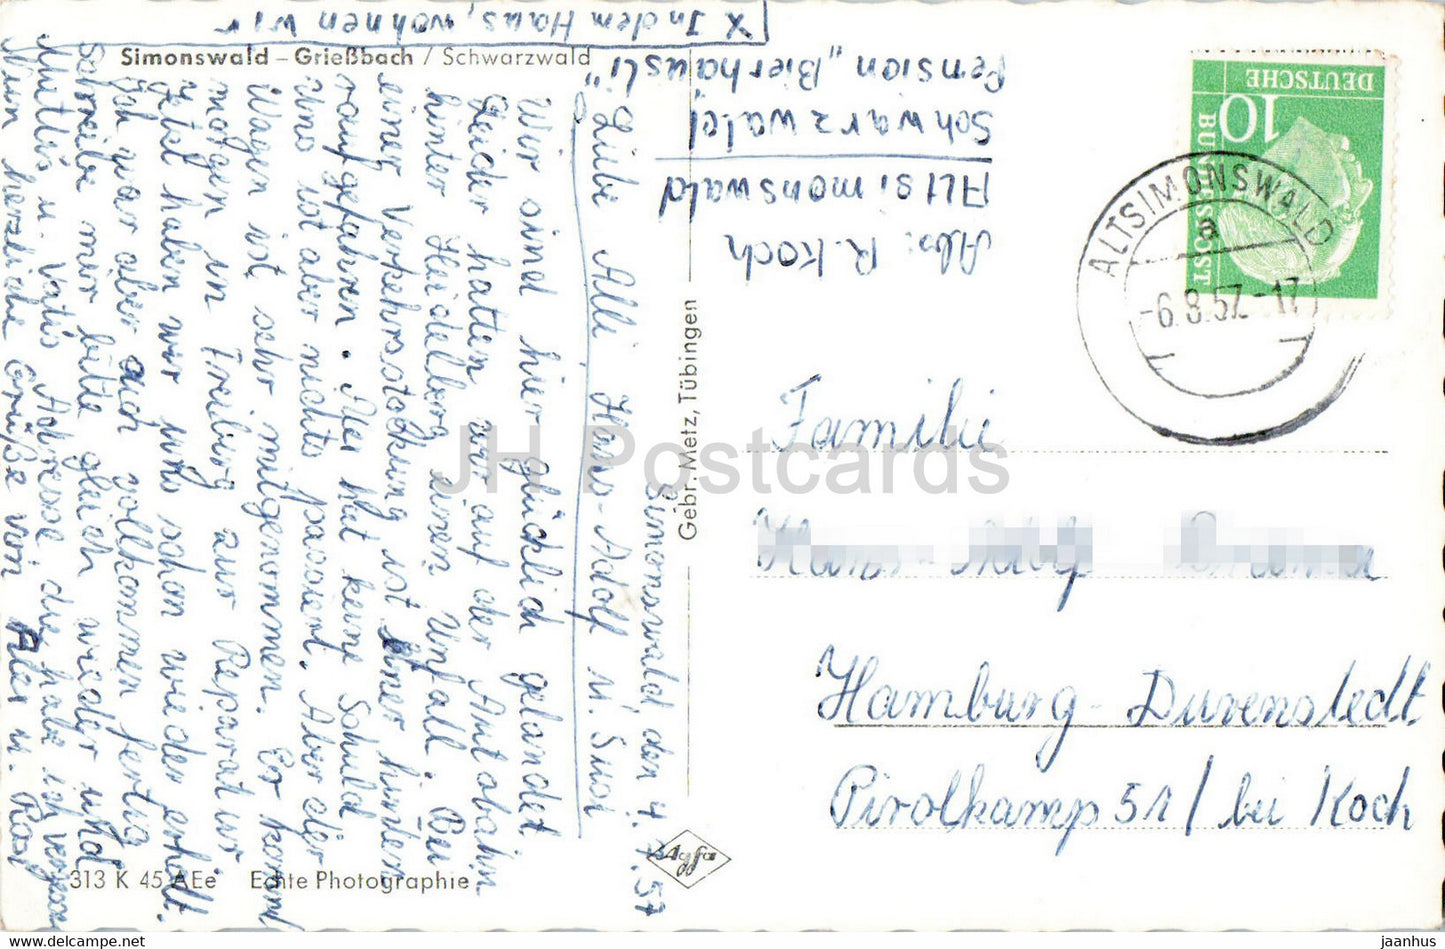 X In dem Haus, wohnen wir
Simonswald – Grießbach / Schwarzwald
Simonswald, den 4. 7. 57
Liebe Alli Hans-Adolf u. Susi
Wir sind hier glücklich gelandet
Leider hatten wir auf der Autobahn
hinter Heidelberg einen Unfall. Bei
einer Verkehrsstockung ist einer hinten
raufgefahren. Alex hat keine Schuld
uns ist aber nichts passiert. Aber der
Wagen ist sehr mitgenommen. Er kommt
morgen in Freiburg zur Reparatur
jetzt haben wir uns schon wieder erholt.
Ich war aber auch vollkommen fertig
Schreibe mir bitte gleich wieder und
Muttis u. Vatis Adresse die habe ich vergessen
Nun herzliche Grüße von Alex u. Rosl
313 K 45 AEe Echte Photographie
Gebr. Metz, Tübingen
Agfa
Abs: R. Koch
Altsimonswald
Schwarzwald
Pension „Bierhäusli"
DEUTSCHE
BUNDESPOST
10
ALTSIMONSWALD
a
-6.8.57.-17
Familie
Hamburg-Duvenstedt
Pirolkamp 51 / bei Koch
JH Postcards
www.delcampe.net
jaanhus